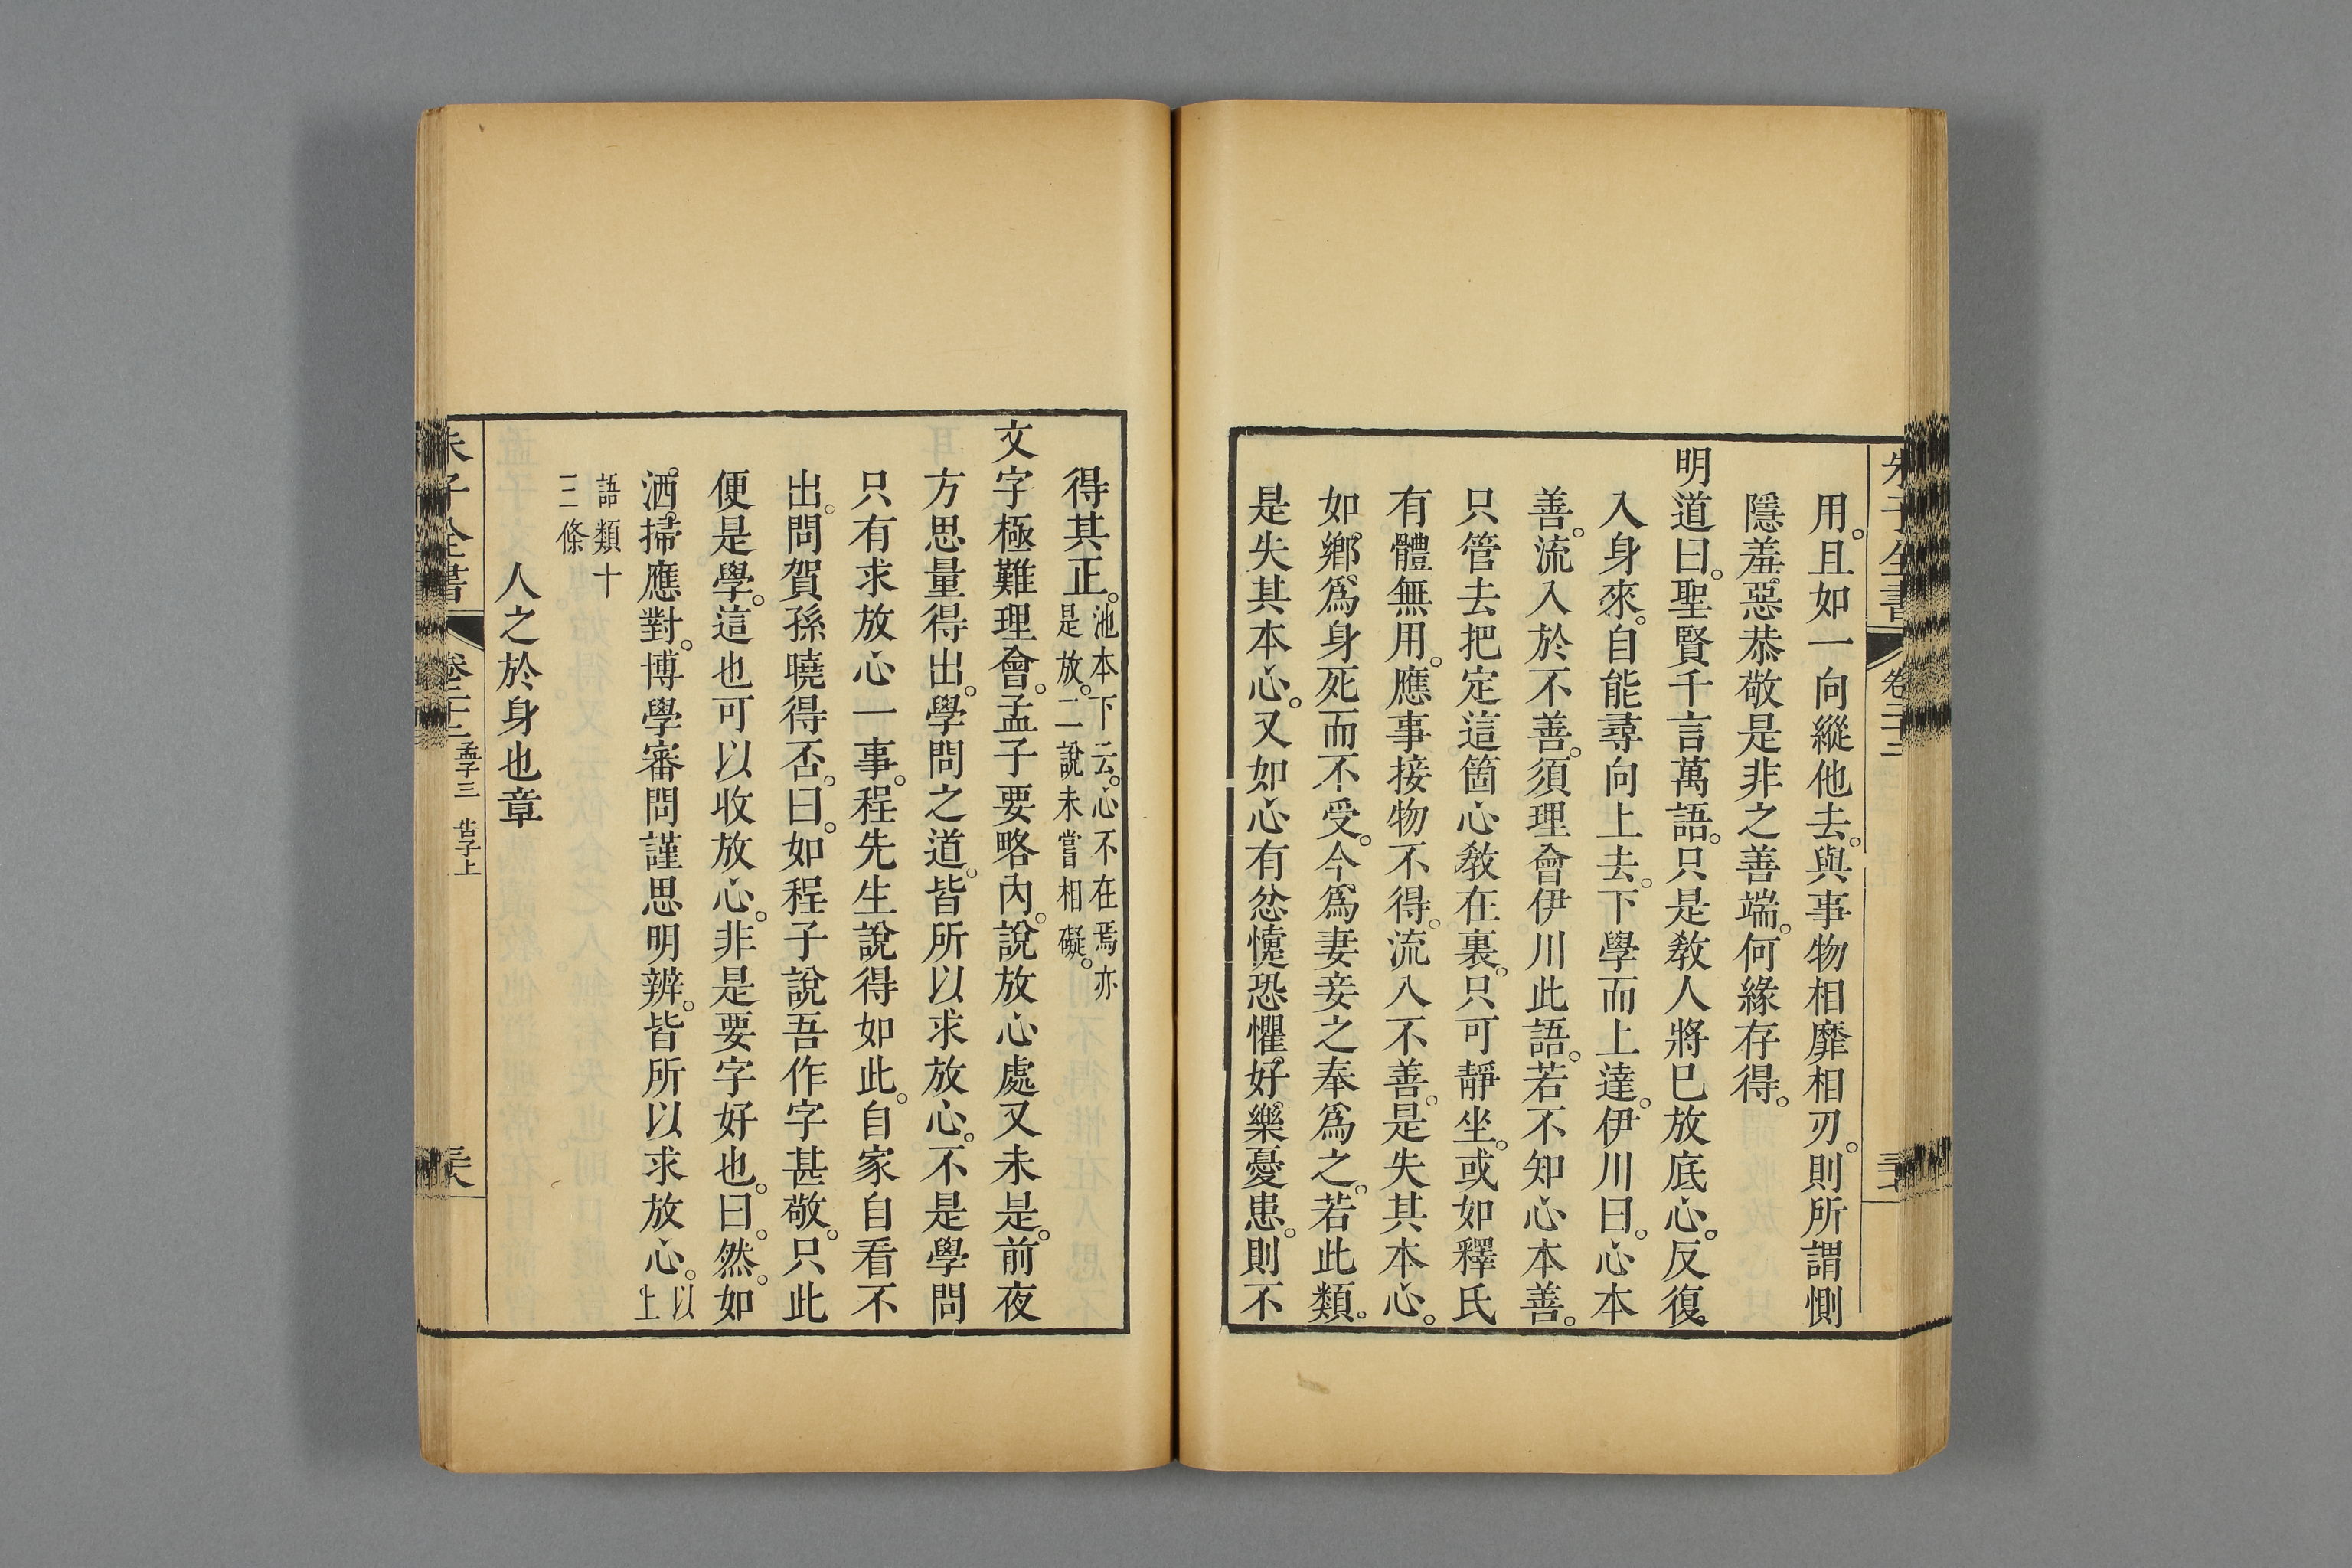 朱子全書 卷二十二
用。且如一向縱他去。與事物相靡相刃。則所謂惻
隱、羞惡、恭敬、是非之善端。何緣存得。
明道曰。聖賢千言萬語。只是敎人將已放底心。反復
入身來。自能尋向上去。下學而上達。伊川曰。心本
善。流入於不善。須理會伊川此語。若不知心本善。
只管去把定這箇心敎在裏。只可靜坐。或如釋氏
有體無用。應事接物不得。流入不善。是失其本心。
如鄕爲身死而不受。今爲妻妾之奉爲之。若此類。
是失其本心。又如心有忿懥恐懼、好樂、憂患。則不
得其正。池本下云。心不在焉亦
是放。二說未嘗相礙。
文字極難理會。孟子要略內。說放心處又未是。前夜
方思量得出。學問之道。皆所以求放心。不是學問
只有求放心一事。程先生說得如此。自家自看不
出。問賀孫曉得否。曰。如程子說吾作字甚敬。只此
便是學。這也可以收放心。非是要字好也。曰。然。如
洒、掃應對。博學審問謹思明辨。皆所以求放心。以
上
語類十
三條
人之於身也章
朱子全書 卷二十二 孟子三 告子上